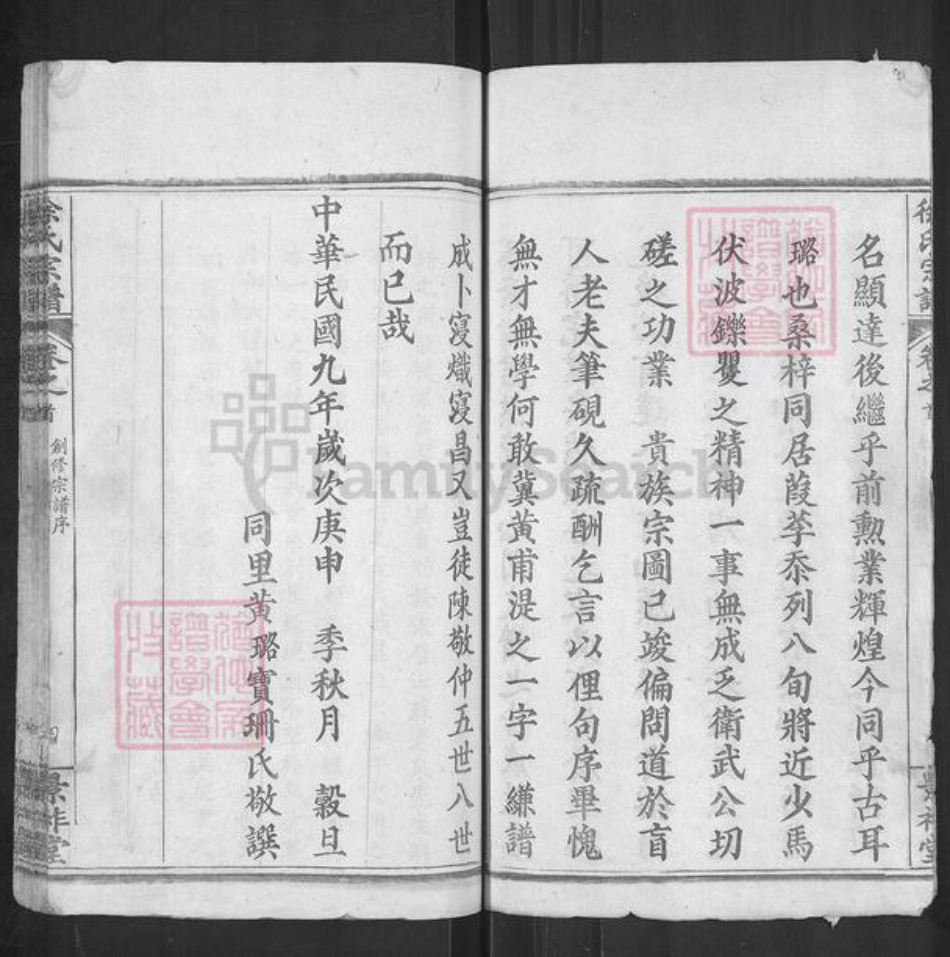 名顯達後繼乎前勲業輝煌今同乎古耳
璐也桑梓同居葭莩忝列八旬將近少馬
伏波鑠矍之精神一事無成乏衛武公切
磋之功業 貴族宗圖已竣偏問道於盲
人老夫筆硯久疏酬乞言以俚句序畢愧
無才無學何敢冀黄甫湜之一字一縑譜
成卜寖熾寖昌又豈徒陳敬仲五世八世
而已哉
中華民國九年歲次庚申 季秋月 穀旦
同里黄璐寶珊氏敬譔
徐氏宗譜
卷之首
創修宗譜序
四
堂
FamilySearch